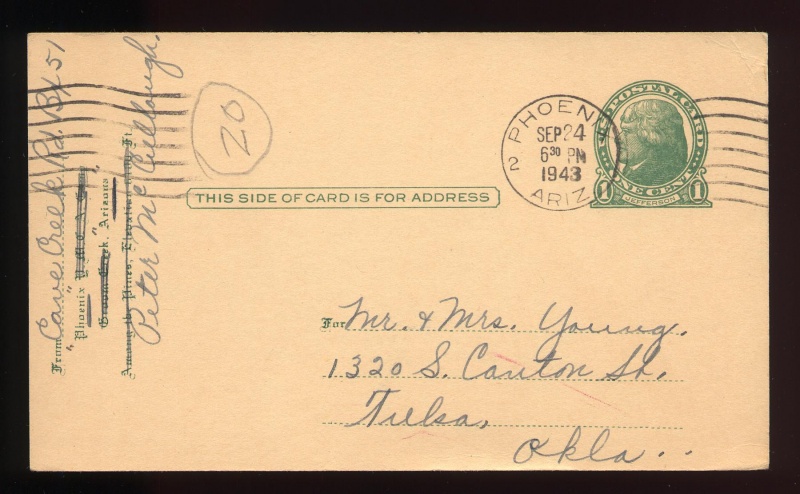 From Cave Creek Rd. Bx 51
Phoenix Y. M. C. A.
Groom Creek, Arizona
Among the Pines, Elevation
Peter McCullough.
20
THIS SIDE OF CARD IS FOR ADDRESS
PHOENIX
2
SEP 24
6 30 PM
1943
ARIZ.
U.S. POSTAL CARD
1 ONE CENT 1
JEFFERSON
For Mr. & Mrs. Young.
1320 S. Canton St.
Tulsa,
Okla..